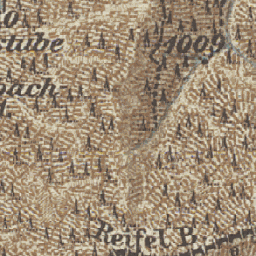 0
stube
1009
bach
Reifel B.